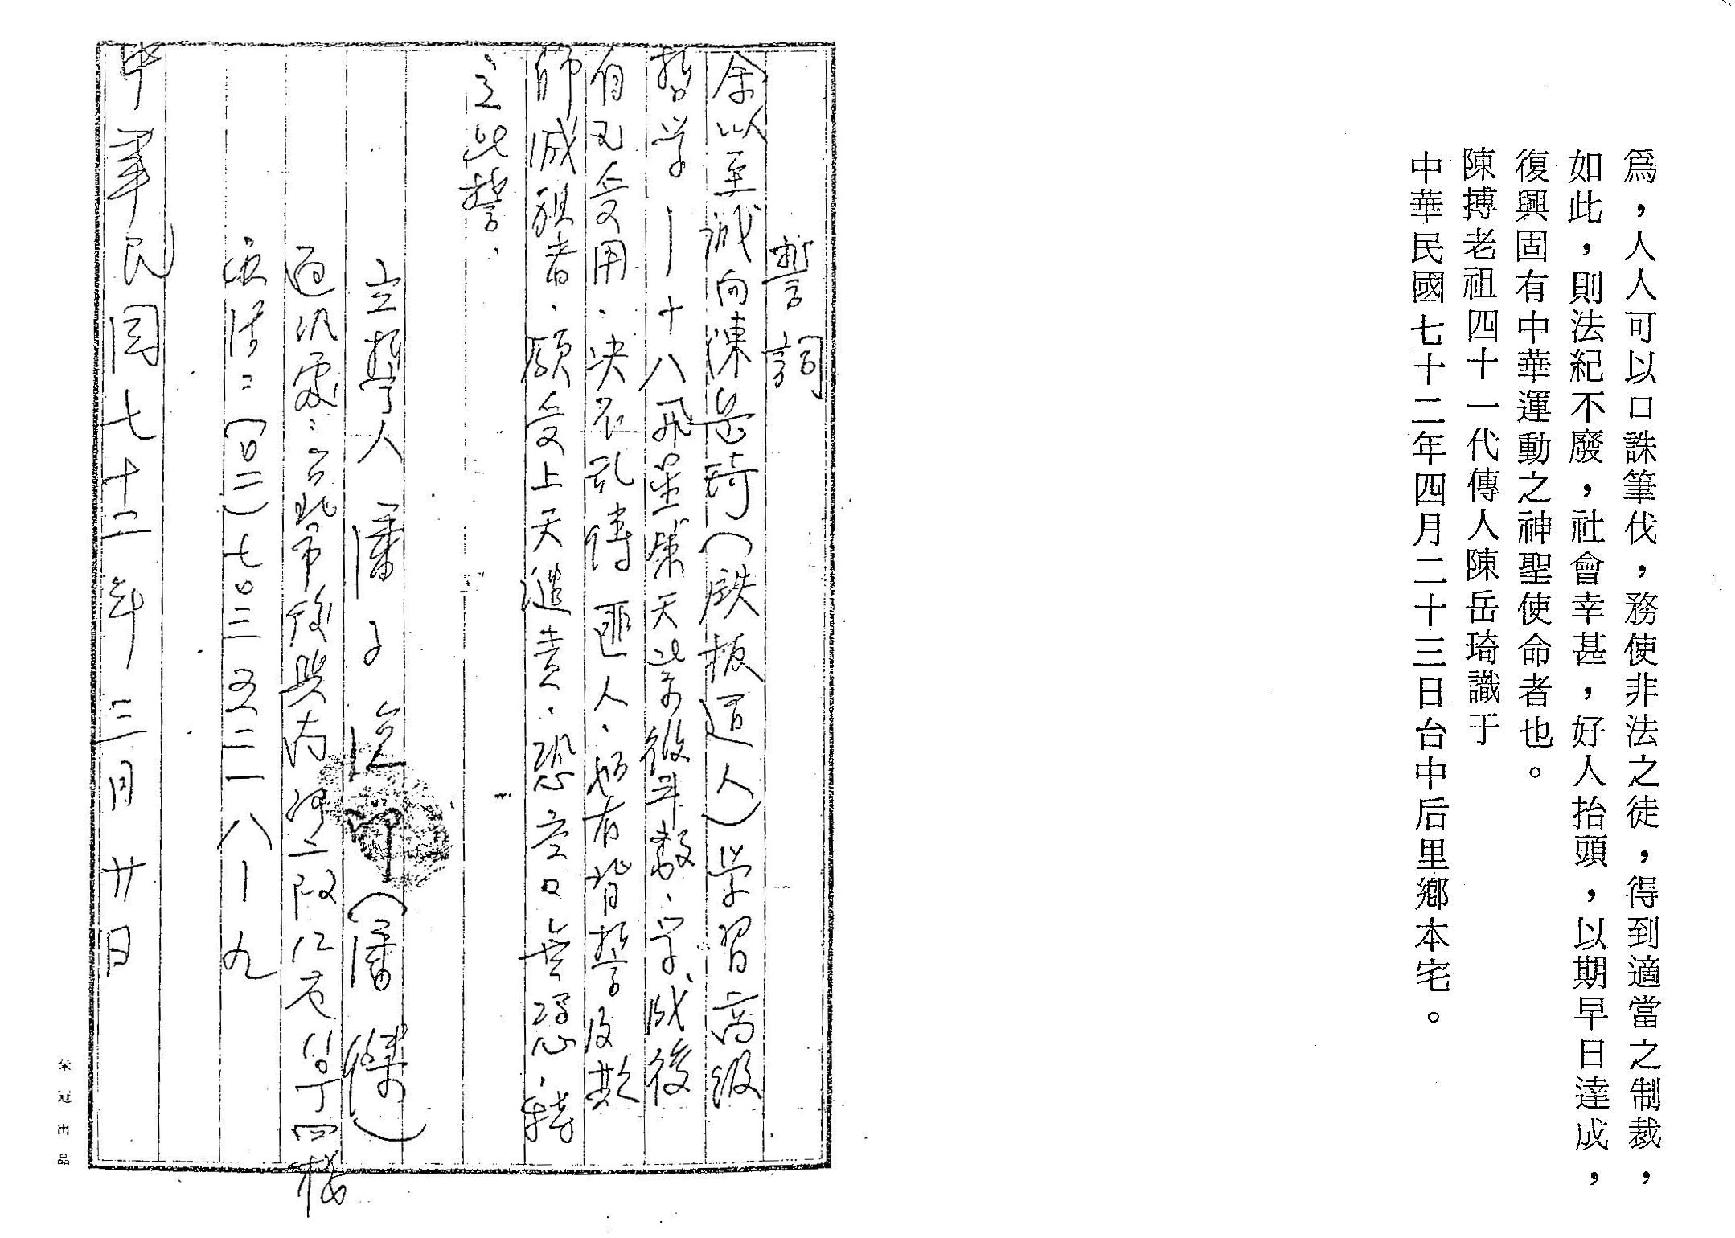 爲，人人可以口誅筆伐，務使非法之徒，得到適當之制裁，
如此，則法紀不廢，社會幸甚，好人抬頭，以期早日達成，
復興固有中華運動之神聖使命者也。
陳摶老祖四十一代傳人陳岳琦識于
中華民國七十二年四月二十三日台中后里鄉本宅。
誓詞
余以至誠向陳岳琦（鉄板道人）学習高級
哲学－十八飛星策天紫微斗数．学成後
自己受用．決不乱傳匪人．如有背誓及欺
師滅祖者．願受上天譴責．恐空口無憑．特
立此誓．
立誓人 潘子 印（潘 ）
通訊處：台北市 內 二段 四楼
電話：（〇二）七〇三五二一八－九
中華民国七十二年三月廿日
榮冠出品